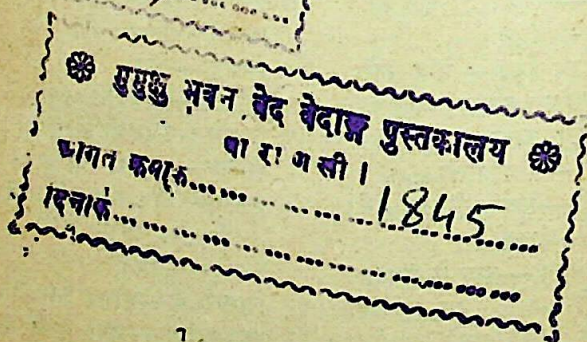 ❁ मुमुक्षु भवन वेद वेदाङ्ग पुस्तकालय ❁
वाराणसी।
आगत क्रमांक........................1845............
दिनांक........................................